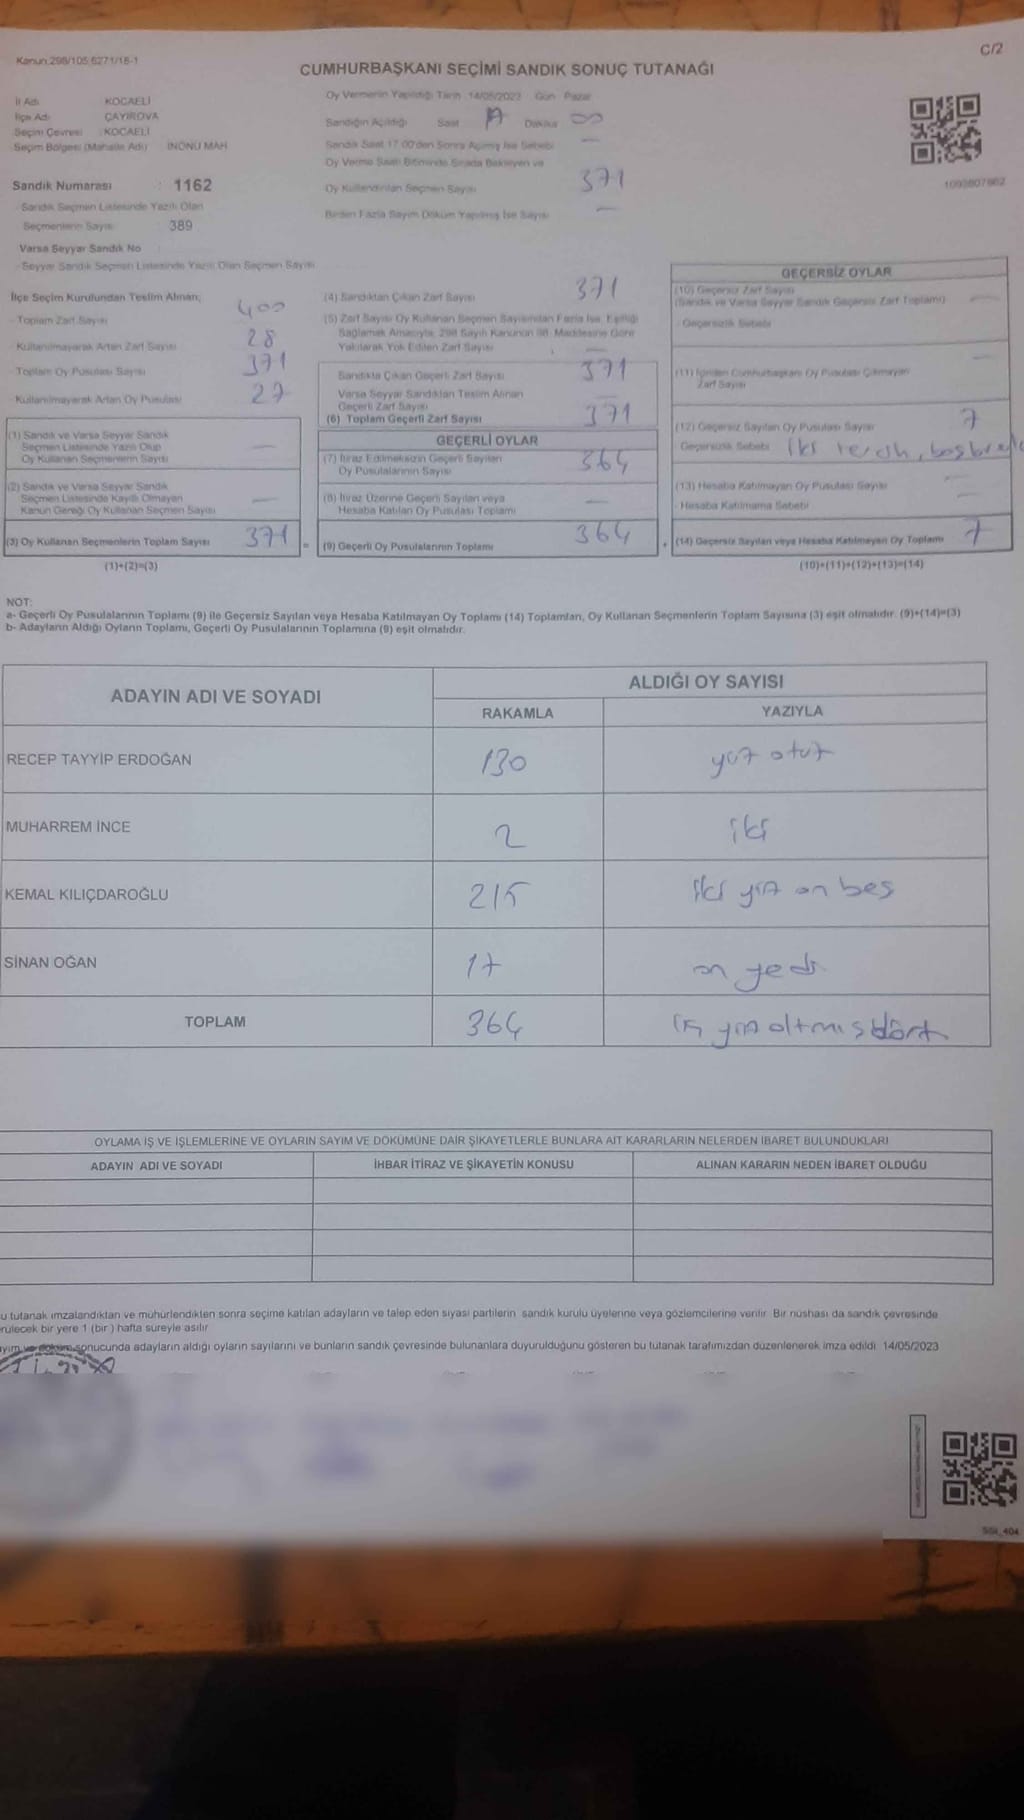 C/2
Kanun 298/105 6271/18-1
CUMHURBAŞKANI SEÇİMİ SANDIK SONUÇ TUTANAĞI
İl Adı KOCAELİ
İlçe Adı ÇAYIROVA
Seçim Çevresi : KOCAELİ
Seçim Bölgesi (Mahalle Adı) İNÖNÜ MAH
Sandık Numarası : 1162
Sandık Seçmen Listesinde Yazılı Olan
Seçmenlerin Sayısı 389
Varsa Seyyar Sandık No
- Seyyar Sandık Seçmen Listesinde Yazılı Olan Seçmen Sayısı
Oy Vermenin Yapıldığı Tarih 14/05/2023 Gün Pazar
Sandığın Açıldığı Saat Dakika
Sandık Saat 17:00'den Sonra Açılmış İse Sebebi —
Oy Verme Saati Bitiminde Sırada Bekleyen ve
Oy Kullandırılan Seçmen Sayısı 371
Birden Fazla Sayım Döküm Yapılmış İse Sayısı —
1093807862
İlçe Seçim Kurulundan Teslim Alınan;
- Toplam Zarf Sayısı 400
- Kullanılmayarak Artan Zarf Sayısı 28
- Toplam Oy Pusulası Sayısı 371
- Kullanılmayarak Artan Oy Pusulası 27
(1) Sandık ve Varsa Seyyar Sandık
Seçmen Listesinde Yazılı Olup
Oy Kullanan Seçmenlerin Sayısı —
(2) Sandık ve Varsa Seyyar Sandık
Seçmen Listesinde Kayıtlı Olmayan
Kanun Gereği Oy Kullanan Seçmen Sayısı —
(3) Oy Kullanan Seçmenlerin Toplam Sayısı 371
(1)+(2)=(3)
(4) Sandıktan Çıkan Zarf Sayısı 371
(5) Zarf Sayısı Oy Kullanan Seçmen Sayısından Fazla İse, Eşitliği
Sağlamak Amacıyla, 298 Sayılı Kanunun 98. Maddesine Göre
Yakılarak Yok Edilen Zarf Sayısı —
Sandıkta Çıkan Geçerli Zarf Sayısı 371
Varsa Seyyar Sandıktan Teslim Alınan
Geçerli Zarf Sayısı
(6) Toplam Geçerli Zarf Sayısı 371
GEÇERLİ OYLAR
(7) İtiraz Edilmeksizin Geçerli Sayılan
Oy Pusulalarının Sayısı 364
(8) İtiraz Üzerine Geçerli Sayılan veya
Hesaba Katılan Oy Pusulası Toplamı —
= (9) Geçerli Oy Pusulalarının Toplamı 364
GEÇERSİZ OYLAR
(10) Geçersiz Zarf Sayısı
(Sandık ve Varsa Seyyar Sandık Geçersiz Zarf Toplamı) —
- Geçersizlik Sebebi
(11) İçinden Cumhurbaşkanı Oy Pusulası Çıkmayan
Zarf Sayısı —
(12) Geçersiz Sayılan Oy Pusulası Sayısı 7
Geçersizlik Sebebi iki tercih,
(13) Hesaba Katılmayan Oy Pusulası Sayısı —
- Hesaba Katılmama Sebebi —
+ (14) Geçersiz Sayılan veya Hesaba Katılmayan Oy Toplamı 7
(10)+(11)+(12)+(13)=(14)
NOT:
a- Geçerli Oy Pusulalarının Toplamı (9) ile Geçersiz Sayılan veya Hesaba Katılmayan Oy Toplamı (14) Toplamları, Oy Kullanan Seçmenlerin Toplam Sayısına (3) eşit olmalıdır. (9)+(14)=(3)
b- Adayların Aldığı Oyların Toplamı, Geçerli Oy Pusulalarının Toplamına (9) eşit olmalıdır.
ADAYIN ADI VE SOYADI
ALDIĞI OY SAYISI
RAKAMLA YAZIYLA
RECEP TAYYİP ERDOĞAN 130 yüz otuz
MUHARREM İNCE 2 iki
KEMAL KILIÇDAROĞLU 215 iki yüz on beş
SİNAN OĞAN 17 on yedi
TOPLAM 364 yüz altmış dört
OYLAMA İŞ VE İŞLEMLERİNE VE OYLARIN SAYIM VE DÖKÜMÜNE DAİR ŞİKAYETLERLE BUNLARA AİT KARARLARIN NELERDEN İBARET BULUNDUKLARI
ADAYIN ADI VE SOYADI İHBAR İTİRAZ VE ŞİKAYETİN KONUSU ALINAN KARARIN NEDEN İBARET OLDUĞU
u tutanak imzalandıktan ve mühürlendikten sonra seçime katılan adayların ve talep eden siyasi partilerin sandık kurulu üyelerine veya gözlemcilerine verilir. Bir nüshası da sandık çevresinde
rülecek bir yere 1 (bir) hafta süreyle asılır
ayım ve döküm sonucunda adayların aldığı oyların sayılarını ve bunların sandık çevresinde bulunanlara duyurulduğunu gösteren bu tutanak tarafımızdan düzenlenerek imza edildi. 14/05/2023
SSI_404